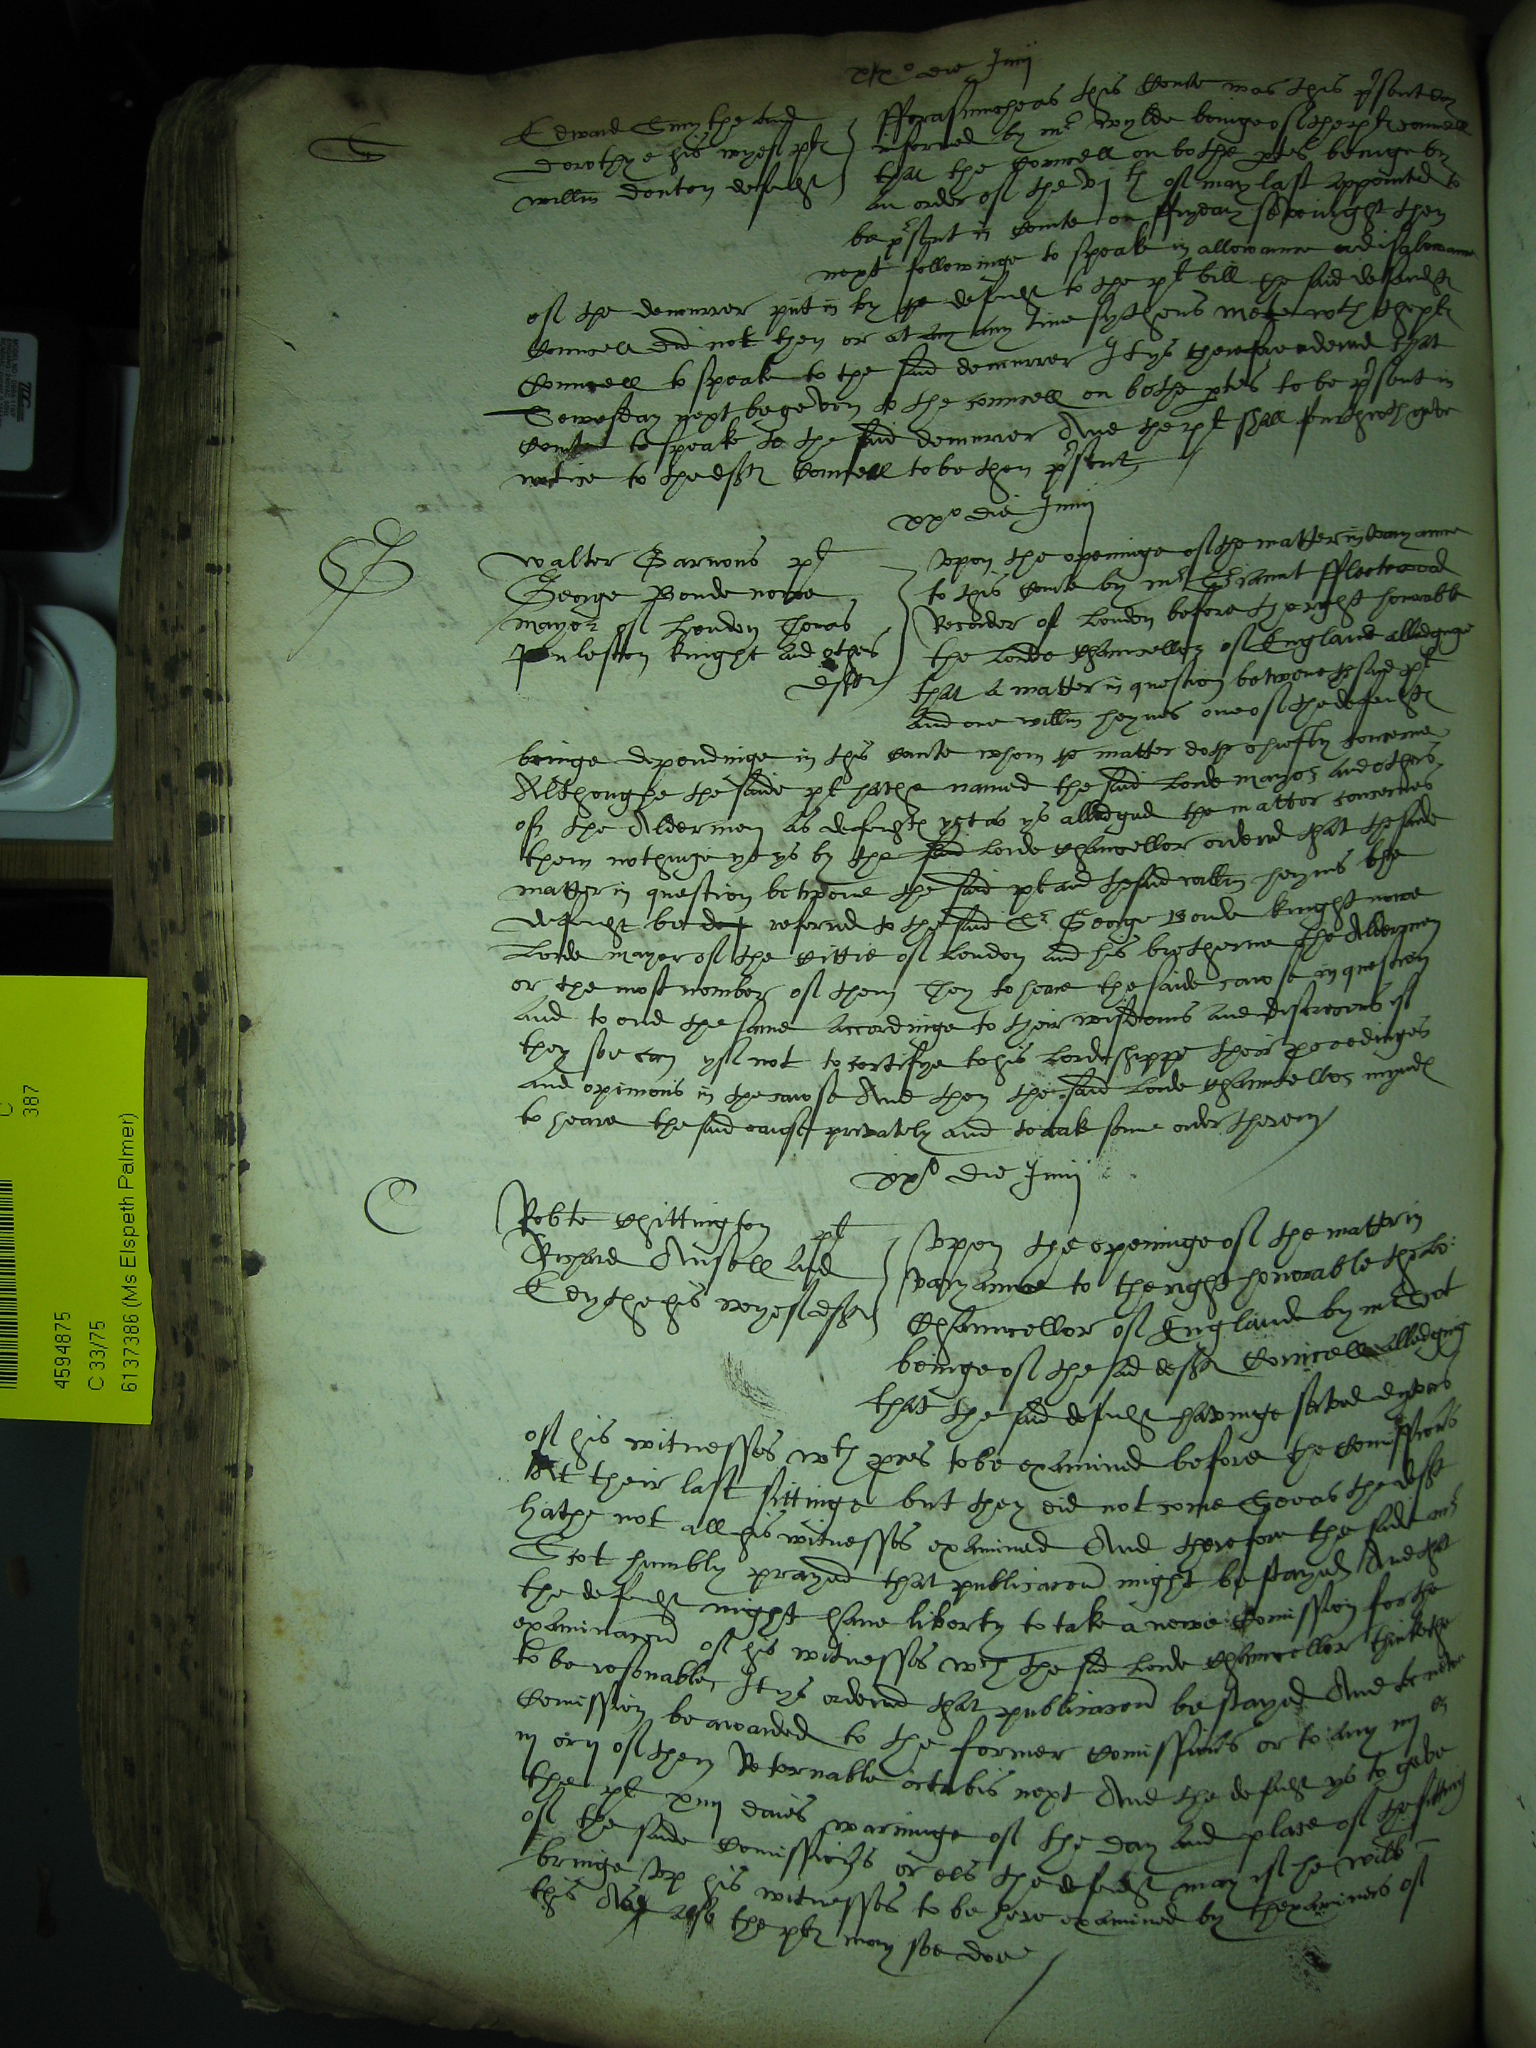 xxo die Junij
S
Edward Smythe and
Dorothye his wyef plt
Willm Denton defendt
fforasmuche as this Courte was this pr̃sent day
informed by mr Wylde beinge of the plts councell
that the Councell on bothe ptes beinge by
an order of the vjth of may last appointed to
be pr̃sent in Courte on ffryday sevenight then
next followinge to speake in allowance or disalowance
of the demurrer put in by the defendt to the plt bill the said defendts
Councell did not then or at any tyme sythens mete wth the plts
Councell to speake to the said demurrer It ys therefore ordered that
day next be geven to the councell on bothe ptes to be pr̃sent in
Courte to speake to the said demurrer And the plt shall furthwth geve
notice to the deftes Councell to be then pr̃sent
xxo die Junij
G
Walter Garnons plt
George Bonde nowe
mayor of London
knight and others
defts
Upon the openinge of the matter in varyannce
to this Courte by mr Seriaunt ffleetwood
Recorder of London before the right honorable
the Lorde Chauncellor of England alledginge
that a matter in question betwene the said plt
and one Willm heynes one of the defendts
beinge dependinge in this Courte whom the matter doth chiefly concerne
Althoughe the saide plt hathe named the said Lorde mayor and others
of the Aldermen as defendts yet as ys alledged the matter concernes
them nothinge yt ys by the said Lorde Chauncellor ordered that the saide
matter in question betwene the said plt and the said Willm heynes the
defendt be referred to the said Sr George Bonde knight nowe
Lorde mayor of the Cittie of London and his brotherne the Aldermen
or the most nomber of them They to heare the saide cawse in question
and to end the same accordinge to their wisdoms and discrecions if
they soe can yf not to certifye to his Lordshippe their procedinges
and opinions in the cawse And then the said Lorde Chauncellor myndes
to heare the said cause privately and to take some order therein
xxo die Junij
C
Robte Chittington plt
Richard Ansell and
Edythe his wyef defts
Upon the openinge of the matter in
varyannce to the right honorable the Lo:
Chauncellor of Englande by mr Scot
beinge of the said defts Councell alledging
that the said defendt havinge served dyvers
of his witnesses wth pces to be examined before the Comissioners
At their last sittinge but they did not come Soe as the deft
hathe not all his witnesses examined And therefore the said mr
Scot humbly prayed that publicacon might be stayed And that
the defendt might have liberty to take a newe Comission for the
examinacon of his witnesses wch the said Lorde Chauncellor thinkethe
to be resonable It ys ordered that publicacon be stayed And
Comission be awarded to the former Comissioners or to any iiij or
iij or ij of them Retornable octabis next And the defendt ys to geve
the plt xiiij daies warninge of the day and place of the sitting
of the saide Comissioners or els the defendt may if he will
bringe vp his witnesses to be here examined by thexaminers of
this the plts may soe doe
4594875
C 33/75
6137386 (Ms Elspeth Palmer)
C
387